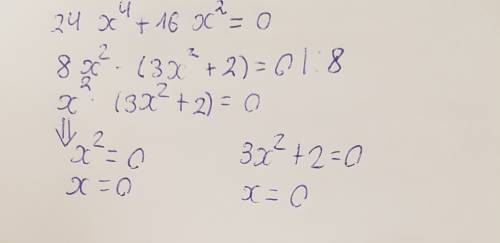 24 x⁴ + 16 x² = 0
8 x² · (3x² + 2) = 0 | : 8
x² · (3x² + 2) = 0
⇓
x² = 0 3x² + 2 = 0
x = 0 x = 0